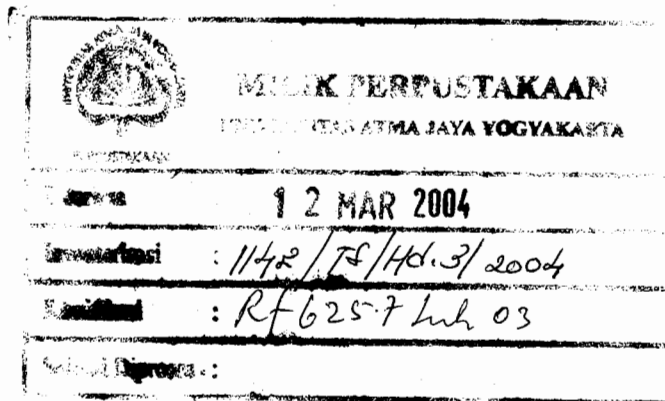 MILIK PERPUSTAKAAN
UNIVERSITAS ATMA JAYA YOGYAKARTA
PERPUSTAKAAN
12 MAR 2004
Inventarisasi : 1142/TS/Hd.3/2004
Klasifikasi : Rf 625.7 Luh 03
Selesai Diproses :